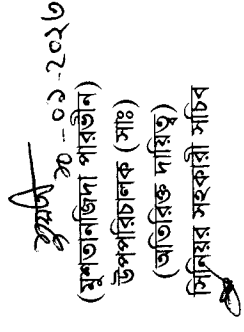 ১০-০১-২০২৬
(মুশতানজিদা পারভীন)
উপপরিচালক (সাঃ)
(অতিরিক্ত দায়িত্ব)
সিনিয়র সহকারী সচিব